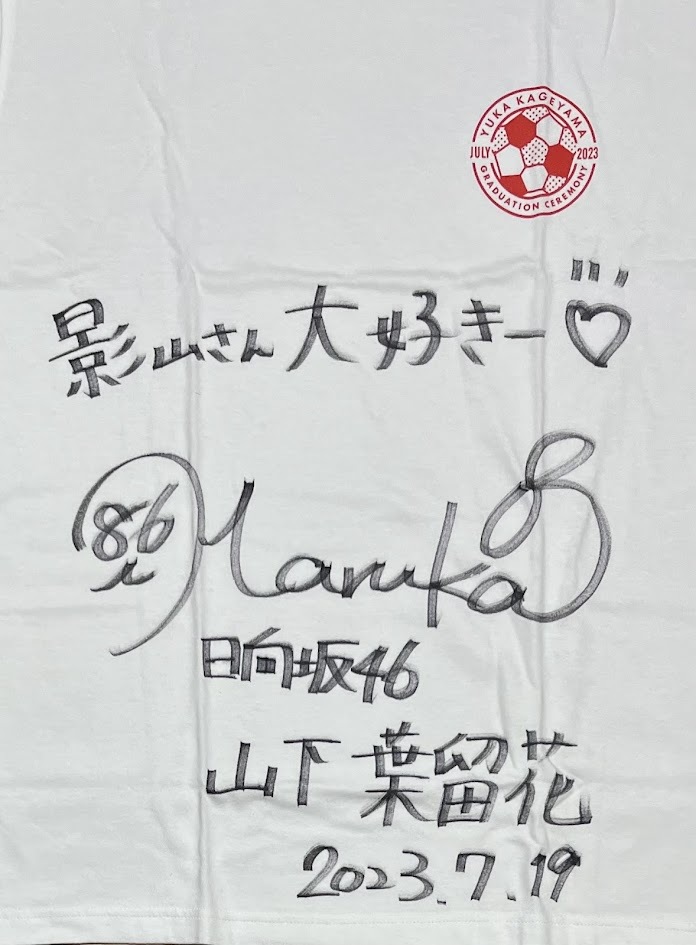 YUKA KAGEYAMA
JULY 2023
GRADUATION CEREMONY
影山さん大好きー♡
Haruka
日向坂46
山下葉留花
2023.7.19